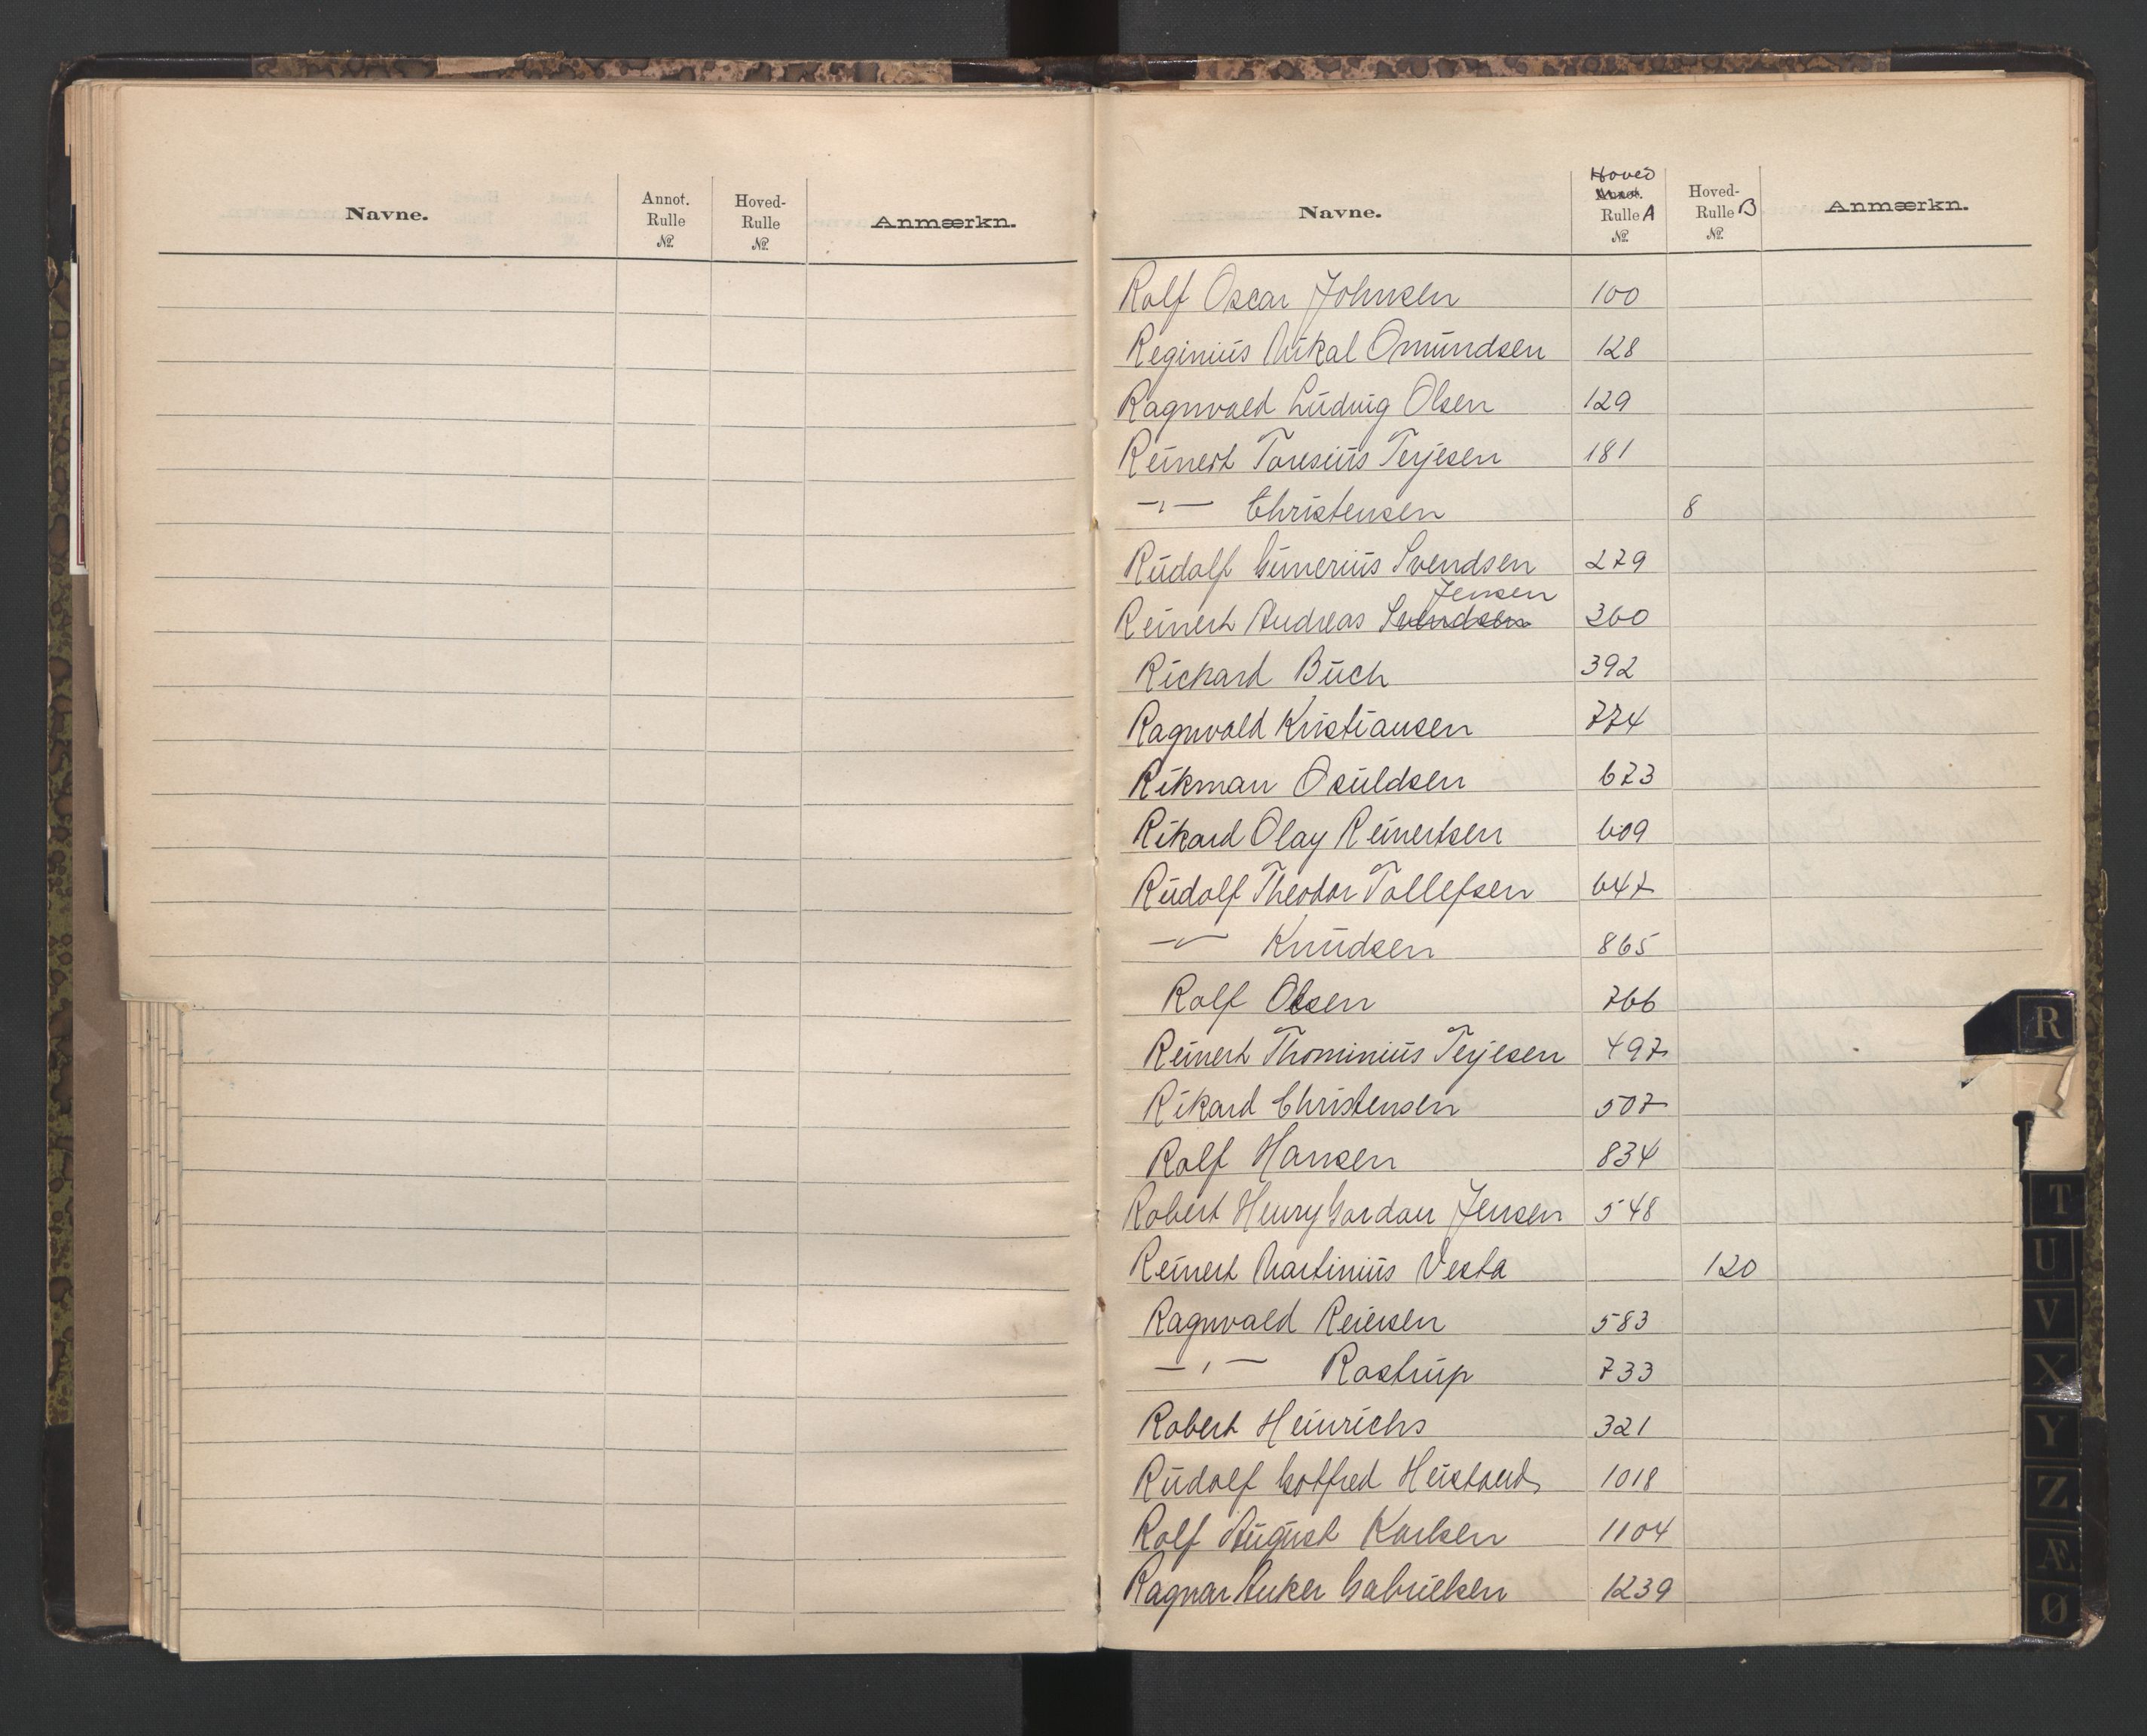 Navne. Annot. Rulle № Hoved-Rulle № Anmærkn.
Navne. Hoved Annot. Rulle A № Hoved-Rulle B № Anmærkn.
Rolf Oscar Johnsen 100
Reginius Mikal Omundsen 128
Ragnvald Ludvig Olsen 129
Reinert Taresius Terjesen 181
—"— Christensen 8
Rudolf Gunerius Svendsen 279
Jensen
Reinert Andreas Svendsen 360
Rickard Buch 392
Ragnvald Kristiansen 774
Rikman Osuldsen 673
Rikard Olay Reinertsen 609
Rudolf Theodor Tollefsen 647
—"— Knudsen 865
Rolf Olsen 766
Reinert Thominius Terjesen 497
Rikard Christensen 507
Rolf Hansen 834
Robert Henry Gordon Jensen 548
Reinert Martinius Vesta 120
Ragnvald Reiersen 583
—"— Rostrup 733
Robert Heinrichs 321
Rudolf Gotfred Heistand 1018
Rolf August Karlsen 1104
Ragnar Anker Gabrielsen 1239
R
T
U
V
X
Y
Z
Æ
Ø